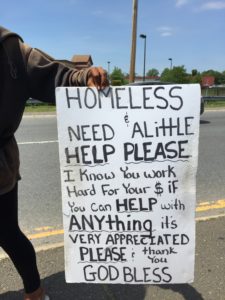 HOMELESS
&
NEED ALittle
HELP PLEASE
I Know You work
Hard For Your $ if
You Can HELP with
ANYthing its
VERY APPRECIATED
PLEASE & thank
You
GOD BLESS